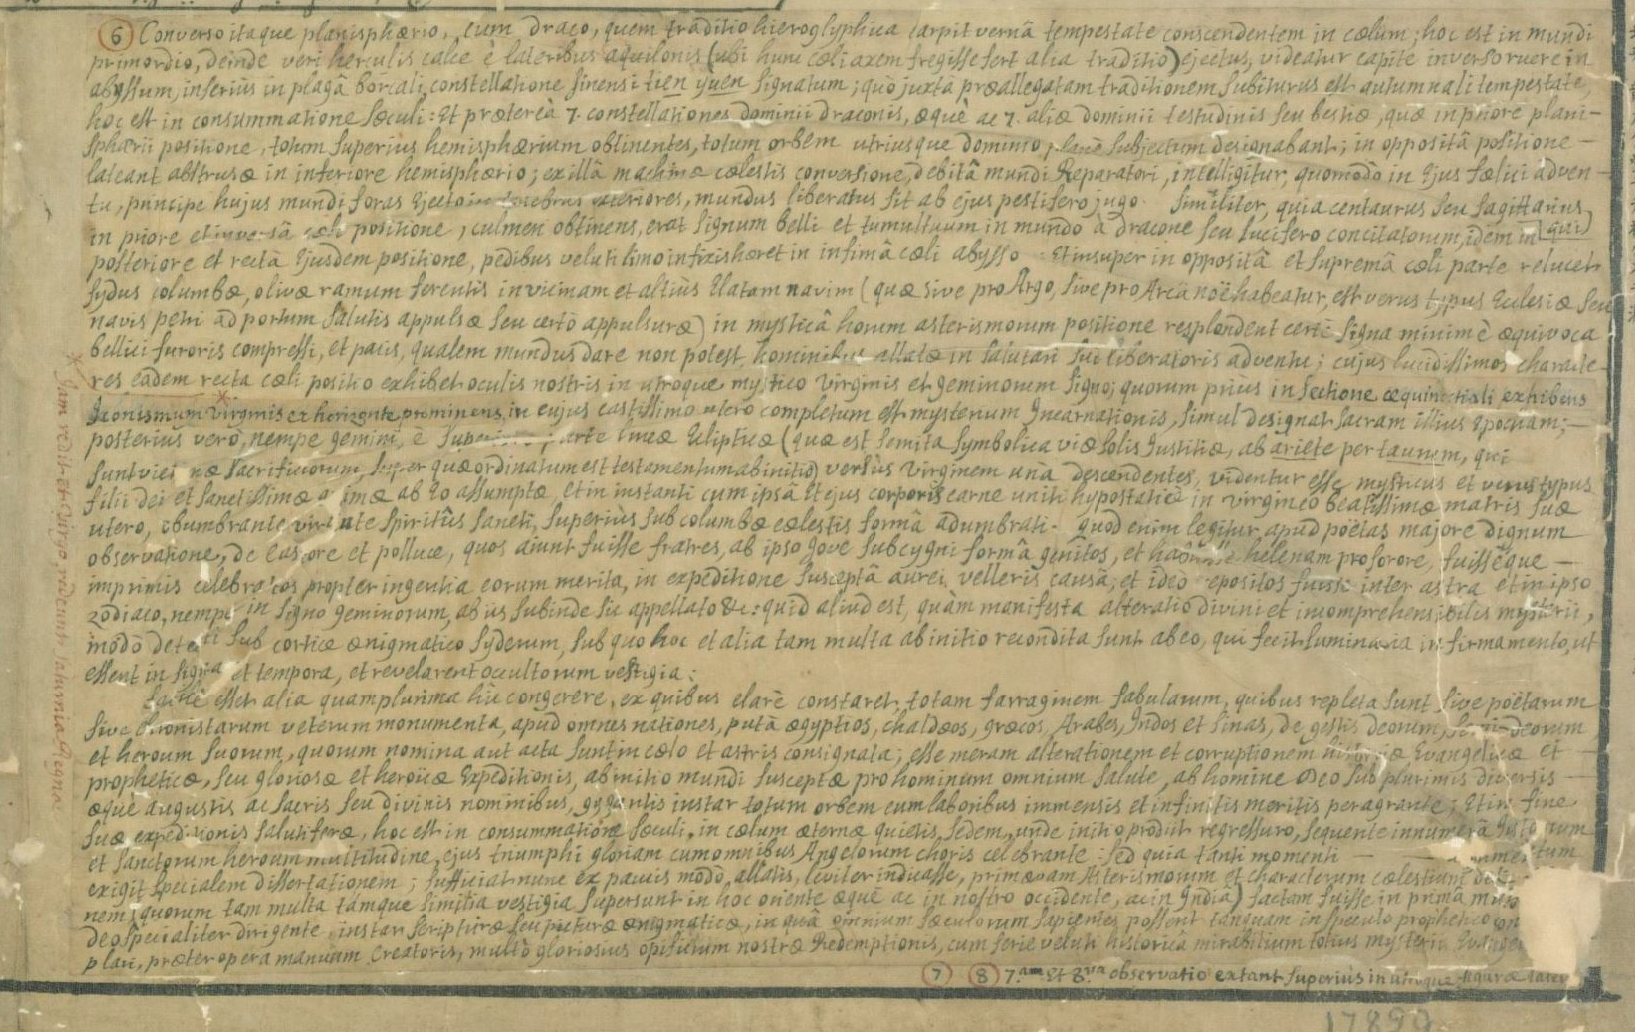 ⑥ Converso itaque planisphærio, cum draco, quem traditio hieroglyphica carpit vernâ tempestate conscendentem in cælum; hoc est in mundi
primordio, deinde veri herculis calce è lateribus aquilonis (ubi hunc cæli axem fregisse fert alia traditio) ejectus, videatur capite inverso ruere in
abyssum, inferius in plagâ boreali, constellatione sinensi tien yuen signatum; quò juxta præallegatam traditionem subiturus est autumnali tempestate,
hoc est in consummatione sæculi: Et prætereà 7. constellationes dominii draconis, æquè ac 7. aliæ dominii testudinis seu bestiæ, quæ in priore plani-
sphærii positione, totum superius hemisphærium obtinentes, totum orbem utriusque dominio planè subjectum designabant; in oppositâ positione -
lateant abstrusæ in inferiore hemisphærio; ex illâ machinæ cælestis conversione, debitâ mundi Reparatori, intelligitur, quomodò in Ejus fælici adven-
tu, principe hujus mundi foras Ejecto in tenebras exteriores, mundus liberatus sit ab ejus pestifero jugo. Similiter, quia centaurus seu Sagittarius,
in priore et inversâ cæli positione, culmen obtinens, erat signum belli et tumultuum in mundo à dracone seu lucifero concitatorum, idem in (qui)
posteriore et rectâ Ejusdem positione, pedibus veluti limo infixis hæret in infimâ cæli abysso. Et insuper in oppositâ et supremâ cæli parte relucet
sydus columbæ, olivæ ramum ferentis in vicinam et altiùs Elatam navim (quæ sive pro Argo, sive pro Arcâ noë habeatur, est verus typus Ecclesiæ seu
navis petri ad portum salutis appulsæ seu certò appulsuræ) in mysticâ horum asterismorum positione resplendent certè signa minimè æquivoca
bellici furoris compressi, et pacis, qualem mundus dare non potest, hominibus allatæ in salutari sui liberatoris adventu; cujus lucidissimos characte-
res eadem recta cæli positio exhibet oculis nostris in utroque mystico Virginis et geminorum signo; quorum priùs in sectione æquinoctiali exhibens
Iconismum virginis ex horizonte prominens, in cujus castissimo utero completum est mysterium Incarnationis, simul designat sacram illius Epocham; -
posterius verò, nempe gemini, è superiore parte lineæ Eclipticæ (quæ est semita symbolica viæ solis Justitiæ, ab ariete per taurum, qui
sunt victimæ sacrificiorum, super quæ ordinatum est testamentum ab initio) versùs Virginem unà descendentes, videntur esse mysticus et verus typus
filii dei et sanctissimæ animæ ab Eo assumptæ, et in instanti cum ipsâ et ejus corporis carne uniti hypostaticè in virgineo beatissimæ matris suæ
utero, obumbrante virtute spiritûs sancti, superiùs sub columbæ cælestis formâ adumbrati. quod enim legitur apud poëtas majore dignum
observatione, de castore et polluce, quos aiunt fuisse fratres, ab ipso Jove sub cygni formâ genitos, et habuisse helenam pro sorore, fuisseque -
imprimis celebratos propter ingentia eorum merita, in expeditione susceptâ aurei velleris causâ; et ideò repositos fuisse inter astra et in ipso
zodiaco, nempe in signo geminorum, ab iis subinde sic appellato &c: quid aliud est, quàm manifesta alteratio divini et incomprehensibilis mysterii,
modò detecti sub cortice ænigmatico syderum, sub quo hoc et alia tam multa ab initio recondita sunt ab eo, qui fecit luminaria in firmamento, ut
essent in signa et tempora, et revelarent occultorum vestigia:
esset alia quamplurima hîc congerere, ex quibus clarè constaret, totam farraginem fabularum, quibus repleta sunt sive poëtarum
sive chronistarum veterum monumenta, apud omnes nationes, putà ægyptios, chaldæos, græcos, Arabes, Indos et sinas, de gestis deorum, semideorum
et heroum suorum, quorum nomina aut acta sunt in cælo et astris consignata; esse meram alterationem et corruptionem historiæ Evangelicæ et -
propheticæ, seu gloriosæ et heroicæ Expeditionis, ab initio mundi susceptæ pro hominum omnium salute, ab homine Deo sub plurimis diversis -
æquè augustis ac sacris seu divinis nominibus, gygantis instar totum orbem cum laboribus immensis et infinitis meritis peragrante; Et in fine
suæ expeditionis salutiferæ, hoc est in consummatione sæculi, in cælum æternæ quietis, sedem, unde initio prodiit regressuro, sequente innumerâ Justorum
et sanctorum heroum multitudine, ejus triumphi gloriam cum omnibus Angelorum choris celebrante: sed quia tanti momenti -
exigit specialem dissertationem; sufficiat nunc ex paucis modò allatis, leviter indicasse, primævam Asterismorum et characterum cælestium
nem (quorum tam multa tamque similia vestigia supersunt in hoc oriente æquè ac in nostro occidente, ac in Indiâ) factam fuisse in primâ
deo specialiter dirigente, instar scripturæ seu picturæ ænigmaticæ, in quâ omnium sæculorum sapientes possent tanquam in speculo prophetico
plari, præter opera manuum Creatoris, multò gloriosius opificium nostræ Redemptionis, cum serie veluti historicâ mirabilium totius mysterii
⑦ ⑧ 7.am Et 8.va observatio extant superius in utroque figuræ latere
* Jam redit et Virgo, redeunt saturnia Regna
17890